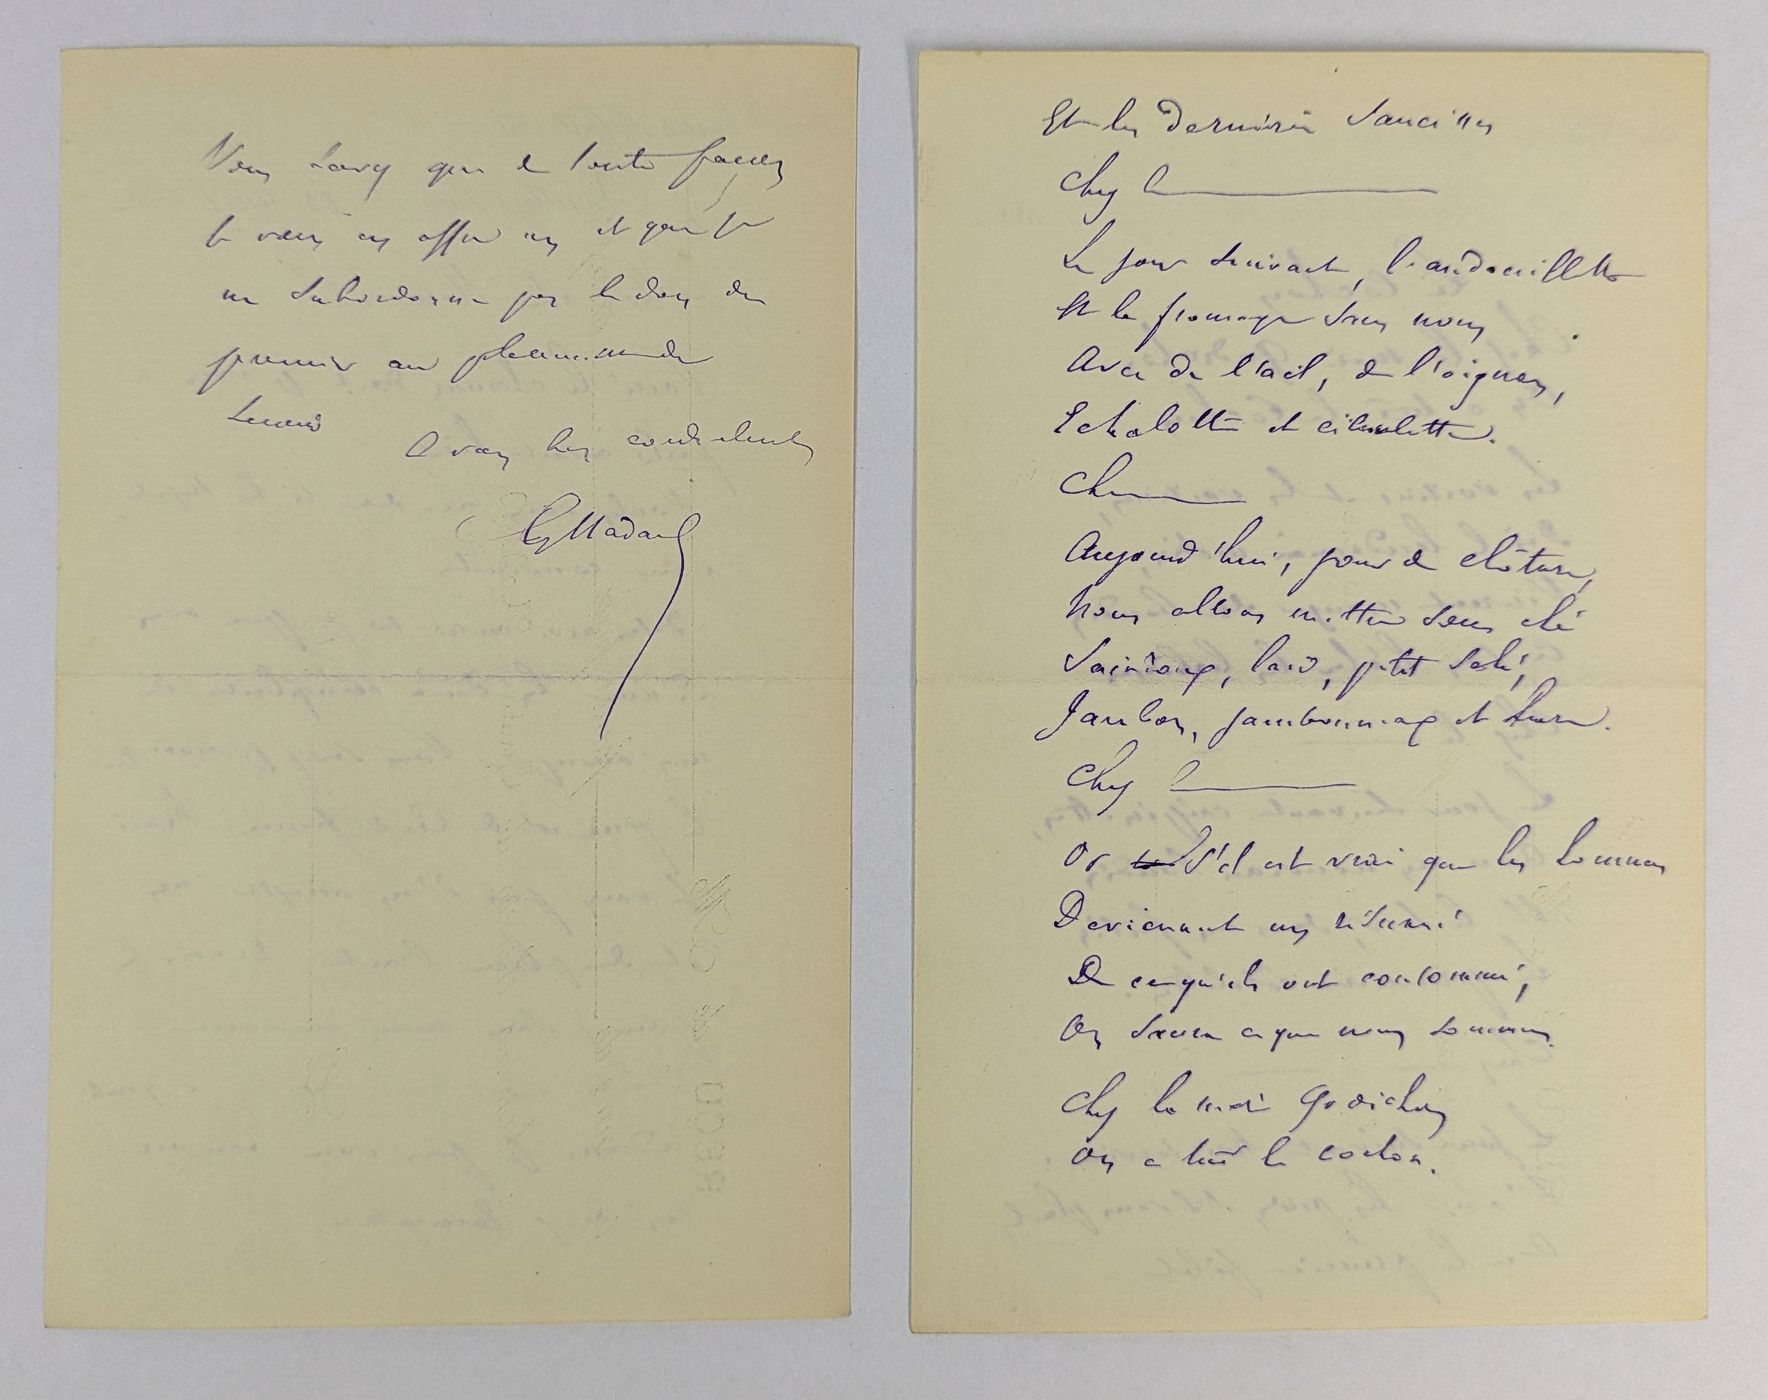 Vous savez que de toute façon
je vous en offre un et que je
ne subordonne pas le don du
premier au
A vous bien cordialement
Et les dernières saucisses
Chez la
Le jour suivant, l'andouillette
Et le fromage sans nom
Avec de l'ail, de l'oignon,
Echalotte et ciboulette.
Chez
Aujourd'hui, jour de clôture,
Nous allons mettre sous clé
Saindoux, lard, petit salé,
Jambon, jambonneaux et hure.
Chez la
Or s'il est vrai que les hommes
Deviennent un résumé
De ce qu'ils ont consommé,
On saura ce que nous sommes.
Chez la mère Godichon
On a tué le cochon.